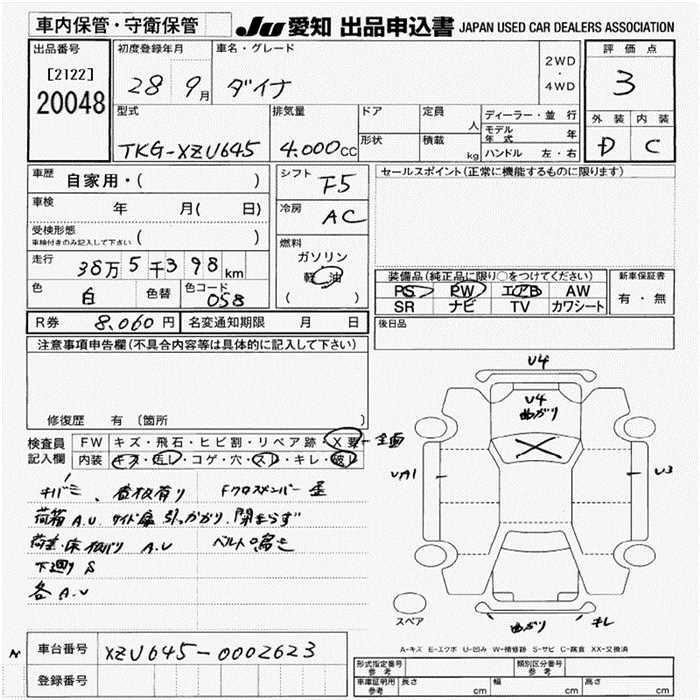 車内保管・守衛保管
JU 愛知 出品申込書 JAPAN USED CAR DEALERS ASSOCIATION
出品番号
[2122]
20048
初度登録年月
28 9月
車名・グレード
ダイナ
2WD
・
4WD
評価点
3
外装 内装
D C
型式
TKG-XZU645
排気量
4.000cc
ドア
形状
定員 人
積載 kg
ディーラー・並行
モデル年式 年
ハンドル 左・右
車歴 自家用・( )
車検 年 月( 日)
受検形態
車検付きのみ記入して下さい ( )
走行 38万5千398km
色 白 色替 色コード 058
シフト F5
冷房 AC
燃料
ガソリン
軽油
( )
セールスポイント(正常に機能するものに限ります)
装備品(純正品に限り○をつけてください)
PS PW エアB AW
SR ナビ TV カワシート
新車保証書
有・無
R券 8,060円 名変通知期限 月 日
後日品
注意事項申告欄(不具合内容等は具体的に記入して下さい)
修復歴 有 〔箇所 〕
検査員
記入欄
FW キズ・飛石・ヒビ割・リペア跡・X要 全面
内装 キズ・汚レ・コゲ・穴・スレ・キレ・破レ
Fクロスメンバー 歪
荷箱 A.U サイド扉 引っかかり、閉まらず
A.U
下廻り S
各 A.U
U4
U4
曲がり
UA1
U3
曲がり
キレ
スペア
A-キズ E-エクボ U-凹み W-補修跡 S-サビ C-腐食 XX-交換済
車台番号 XZU645-0002623
登録番号
形式指定番号
参考
類別区分番号
参考
車庫証明用
参考
長さ cm 幅 cm 高さ cm